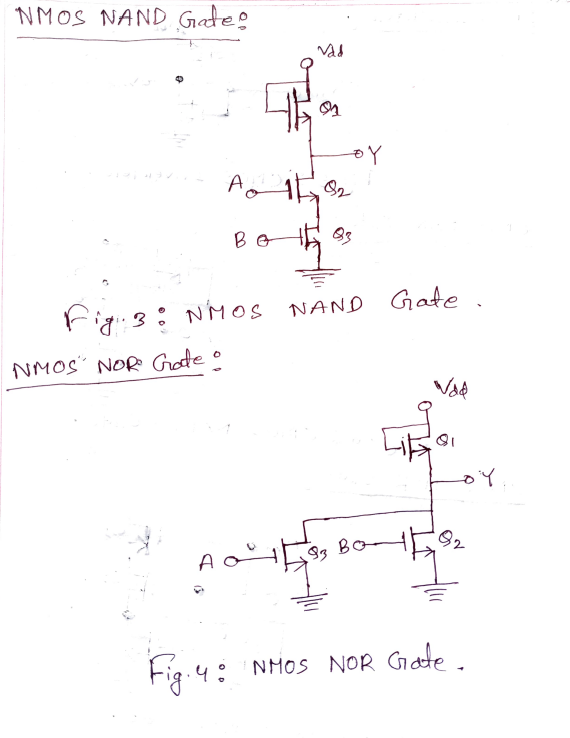 NMOS NAND Gate:
Vdd
Q1
Y
A Q2
B Q3
Fig. 3 : NMOS NAND Gate .
NMOS NOR Gate :
Vdd
Q1
Y
A Q3 B Q2
Fig. 4 : NMOS NOR Gate .